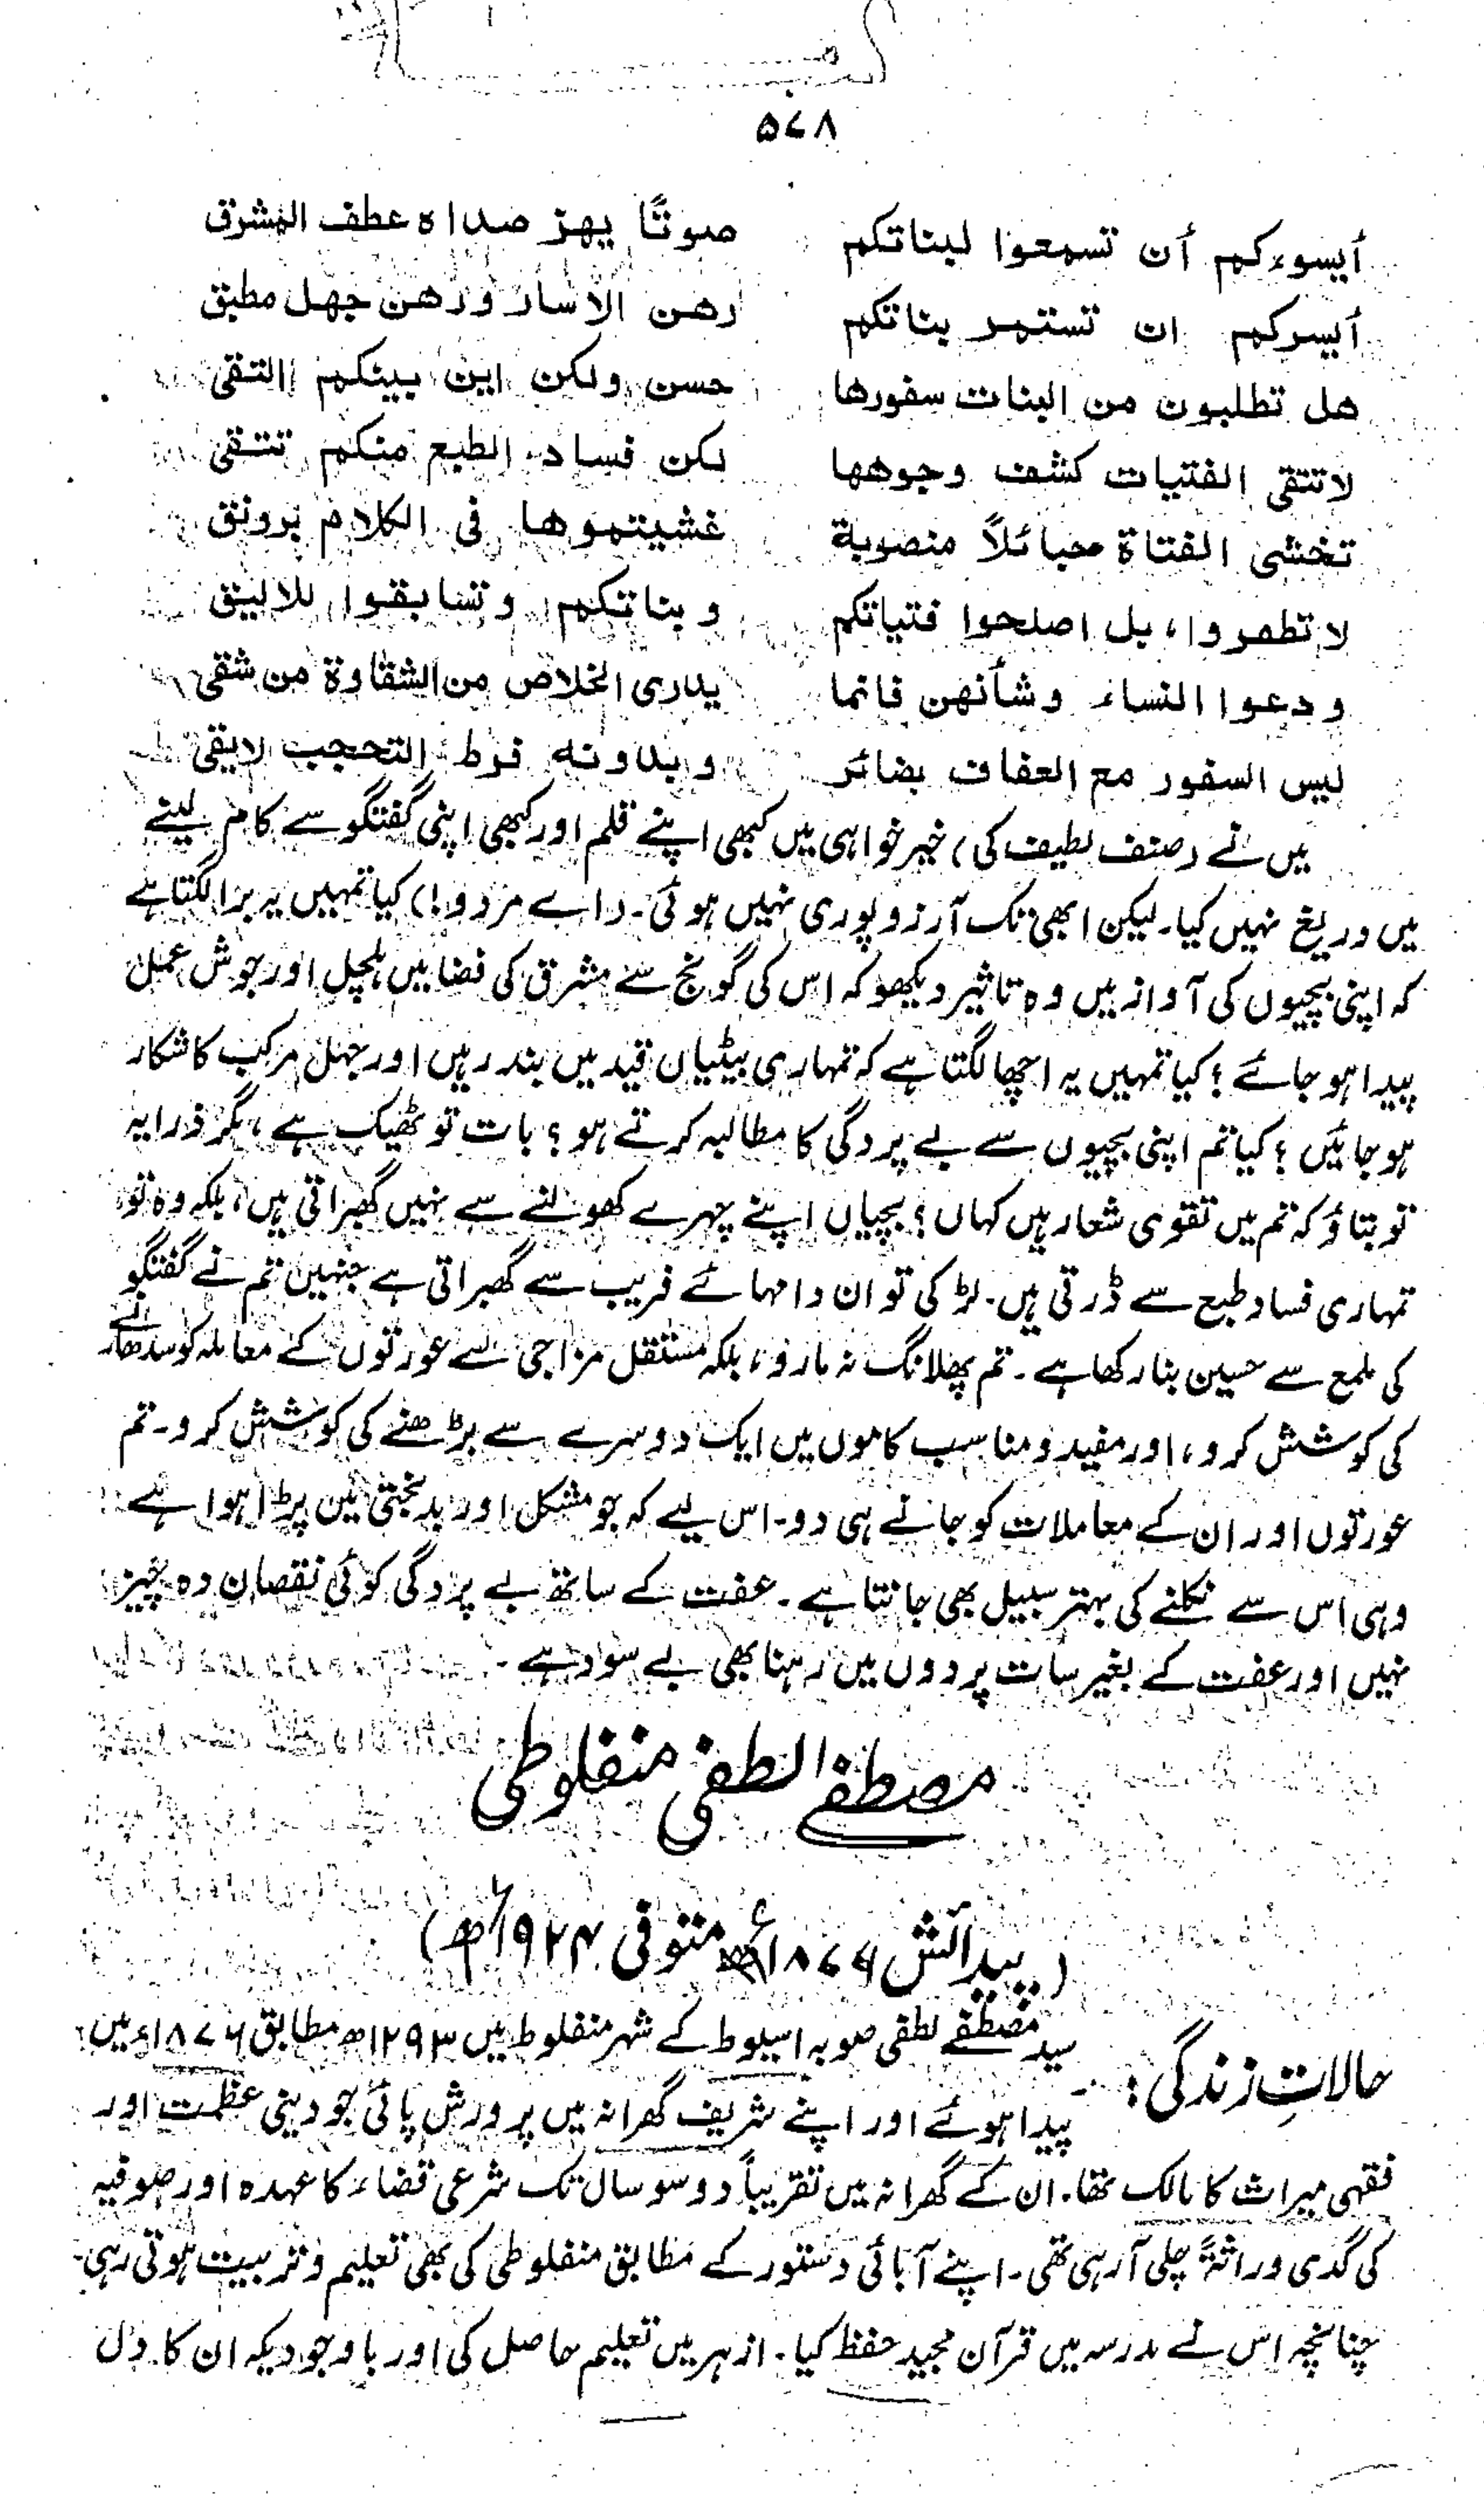 ۵۷۸
أيسوءكم أن تسمعوا لبناتكم صوتًا يهز صداه عطف المشرق
أيسركم ان تستمر بناتكم رهن الاسار ورهن جهل مطبق
هل تطلبون من البنات سفورها حسن ولكن اين بينكم التقى
لا تتقى الفتيات كشف وجوهها لكن فساد الطبع منكم تتقى
تخشى الفتاة حبائلاً منصوبة غشيتموها فى الكلام برونق
لا تطفروا، بل اصلحوا فتياتكم وبناتكم وتسابقوا للاليق
ودعوا النساء وشأنهن فانما يدرى الخلاص من الشقاوة من شقى
ليس السفور مع العفاف بضائر وبدونه فرط التحجب لايقى
میں نے (صنف لطیف کی) خیر خواہی میں کبھی اپنے قلم اور کبھی اپنی گفتگو سے کام لینے
میں دریغ نہیں کیا۔ لیکن ابھی تک آرزو پوری نہیں ہوئی۔ (اے مردو!) کیا تمہیں یہ برا لگتا ہے
کہ اپنی بچیوں کی آواز میں وہ تاثیر دیکھو کہ اس کی گونج سے مشرق کی فضا میں ہلچل اور جوش عمل
پیدا ہو جائے؟ کیا تمہیں یہ اچھا لگتا ہے کہ تمہاری بیٹیاں قید میں بند رہیں اور جہل مرکب کا شکار
ہو جائیں؟ کیا تم اپنی بچیوں سے بے پردگی کا مطالبہ کرتے ہو؟ بات تو ٹھیک ہے، مگر ذرا یہ
تو بتاؤ کہ تم میں تقوی شعار ہیں کہاں؟ بچیاں اپنے چہرے کھولنے سے نہیں گھبراتی ہیں، بلکہ وہ تو
تمہاری فساد طبع سے ڈرتی ہیں۔ لڑکی تو ان دامہائے فریب سے گھبراتی ہے جنہیں تم نے گفتگو
کی ملمع سے حسین بنا رکھا ہے۔ تم پھلانگ نہ مارو، بلکہ مستقل مزاجی سے عورتوں کے معاملہ کو سدھارنے
کی کوشش کرو، اور مفید و مناسب کاموں میں ایک دوسرے سے بڑھنے کی کوشش کرو۔ تم
عورتوں اور ان کے معاملات کو جانے ہی دو۔ اس لیے کہ جو مشکل اور بدبختی میں پڑا ہوا ہے
وہی اس سے نکلنے کی بہتر سبیل بھی جانتا ہے۔ عفت کے ساتھ بے پردگی کوئی نقصان دہ چیز
نہیں اور عفت کے بغیر سات پردوں میں رہنا بھی بے سود ہے۔
مصطفےٰ لطفی منفلوطی
(پیدائش ۱۸۷۶ء متوفی ۱۹۲۴ء)
حالاتِ زندگی: سید مصطفےٰ لطفی صوبہ اسیوط کے شہر منفلوط میں ۱۲۹۳ھ مطابق ۱۸۷۶ء میں
پیدا ہوئے اور اپنے شریف گھرانہ میں پرورش پائی جو دینی عظمت اور
فقہی میراث کا مالک تھا۔ ان کے گھرانہ میں تقریباً دو سو سال تک شرعی قضاء کا عہدہ اور صوفیہ
کی گدی وراثۃً چلی آ رہی تھی۔ اپنے آبائی دستور کے مطابق منفلوطی کی بھی تعلیم و تربیت ہوتی رہی۔
چنانچہ اس نے مدرسہ میں قرآن مجید حفظ کیا۔ ازہر میں تعلیم حاصل کی اور باوجودیکہ ان کا دل